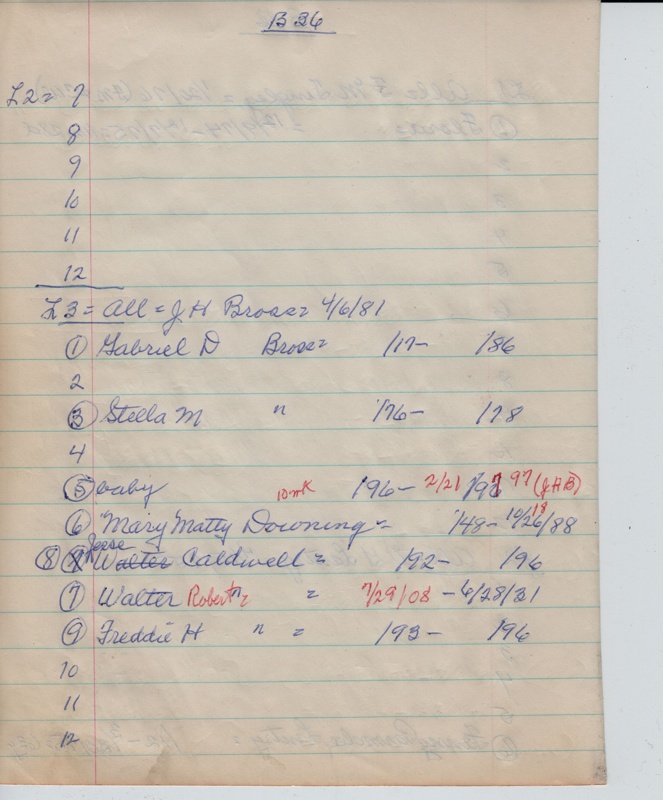 B 26
L2 = 7
8
9
10
11
12
L3 = All = J H Bross = 4/6/81
① Gabriel D Bross = /17- /86
2
③ Stella M " /76- /78
4
⑤ baby 10 mk /96- 2/21 /97 (JHB)
⑥ "Mary" Matty Downing = /48- 10/26/88
Jesse
⑧ Walter Caldwell = /92- /96
⑦ Walter Robert " = 7/29/08 - 6/28/31
⑨ Freddie H " = /93- /96
10
11
12